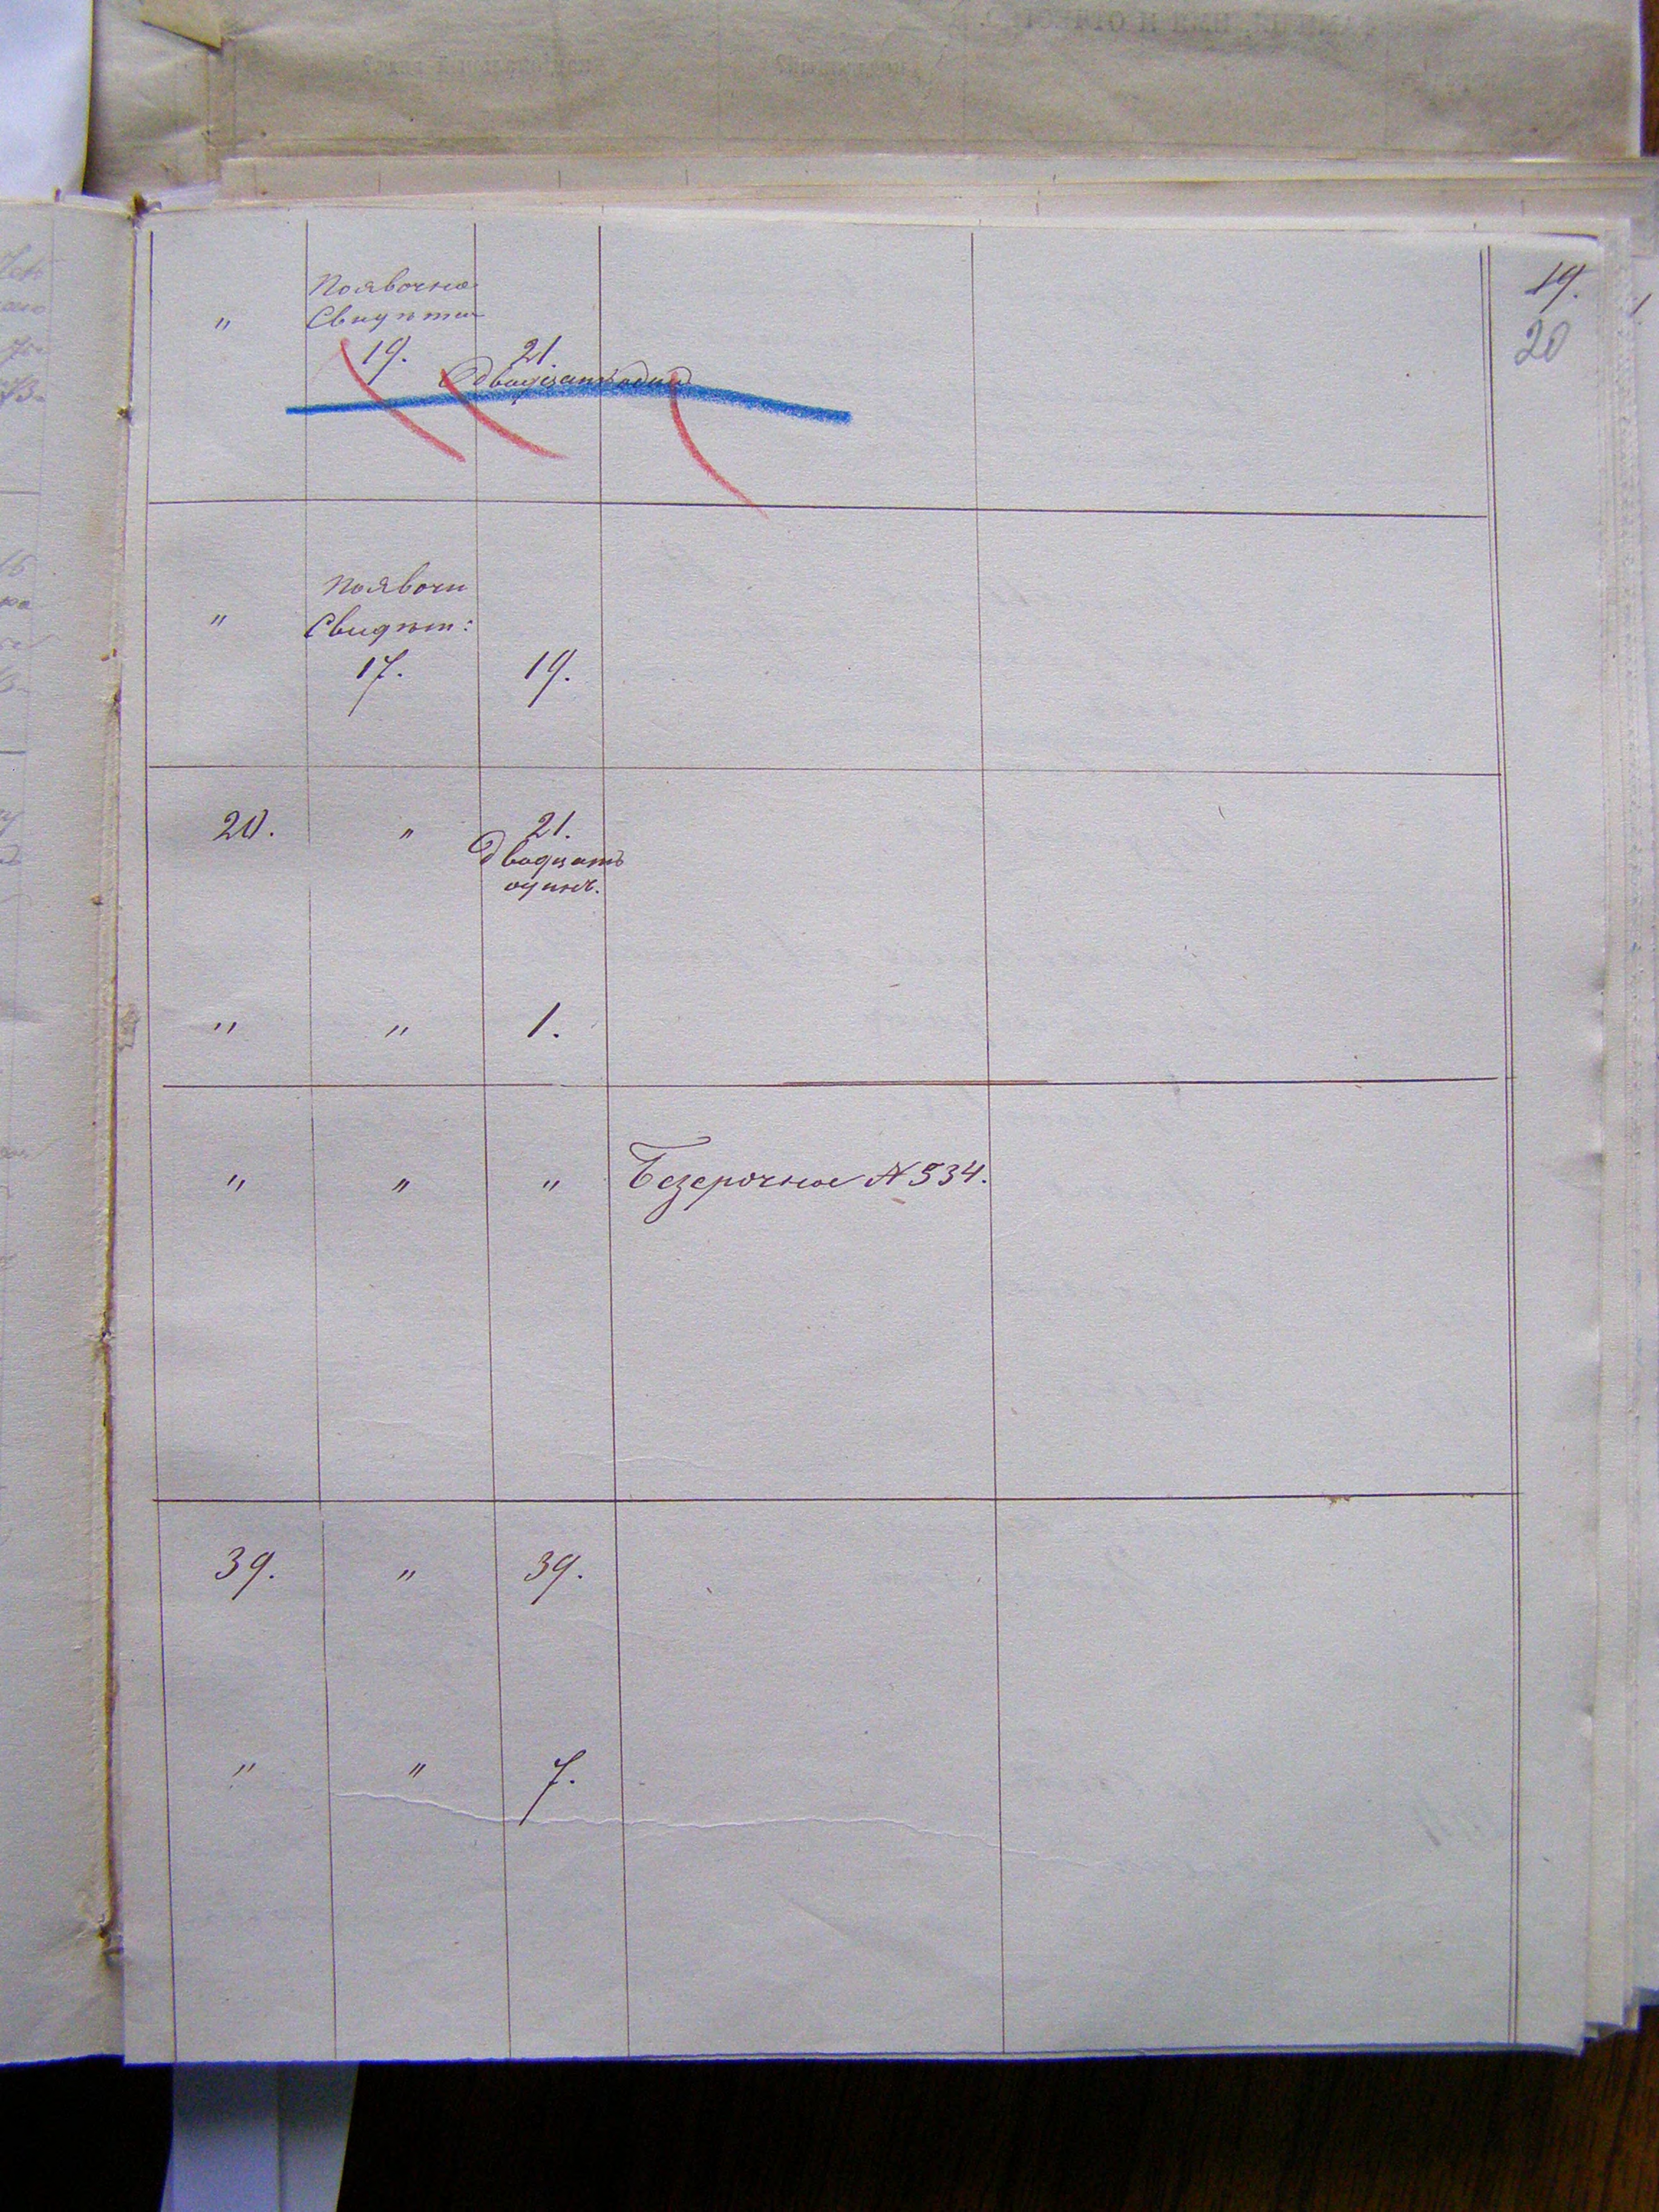 19.
20
Появочно
„
Свидѣтел
19.
21.
Двадцать один
Появочн
„
Свидѣт:
17.
19.
20.
„
21.
двадцать
одинъ.
„
„
1.
„
„
„
Безсрочное № 534.
39.
„
39.
„
„
7.